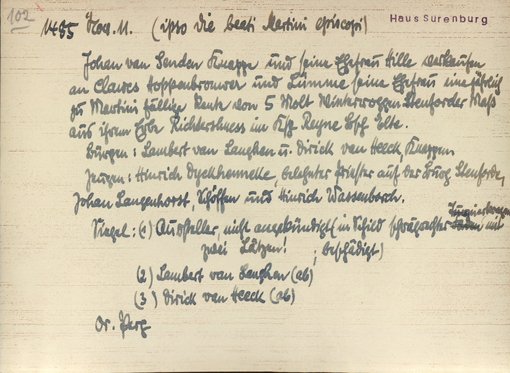 102
1485 Nov. 11. (ipso die beati Martini episcopi)
Haus Surenburg
Johan van Senden Knappe und seine Ehefrau Hille verkaufen
an Clawes Hoppenbrouwer und Lümme seine Ehefrau eine jährlich
zu Martini fällige Rente von 5 Molt Winterroggen Stenforder Maß
aus ihrem Erbe Richters im Ksp. Reyne Bsch. Elte.
Bürgen: Lambert van Langhen u. Dirick van Heeck, Knappen
Zeugen: Hinrich, belehnter Priester auf der Burg Stenforde,
Johan Langenhorst, Schöffen und Hinrich Wassenborch.
Siegel: (1) Aussteller, nicht angekündigt (im Schild mit
zwei Lätzen! ; beschädigt)
(2) Lambert van Langhen (ab)
(3) Dirick van Heeck (ab)
Or. Perg